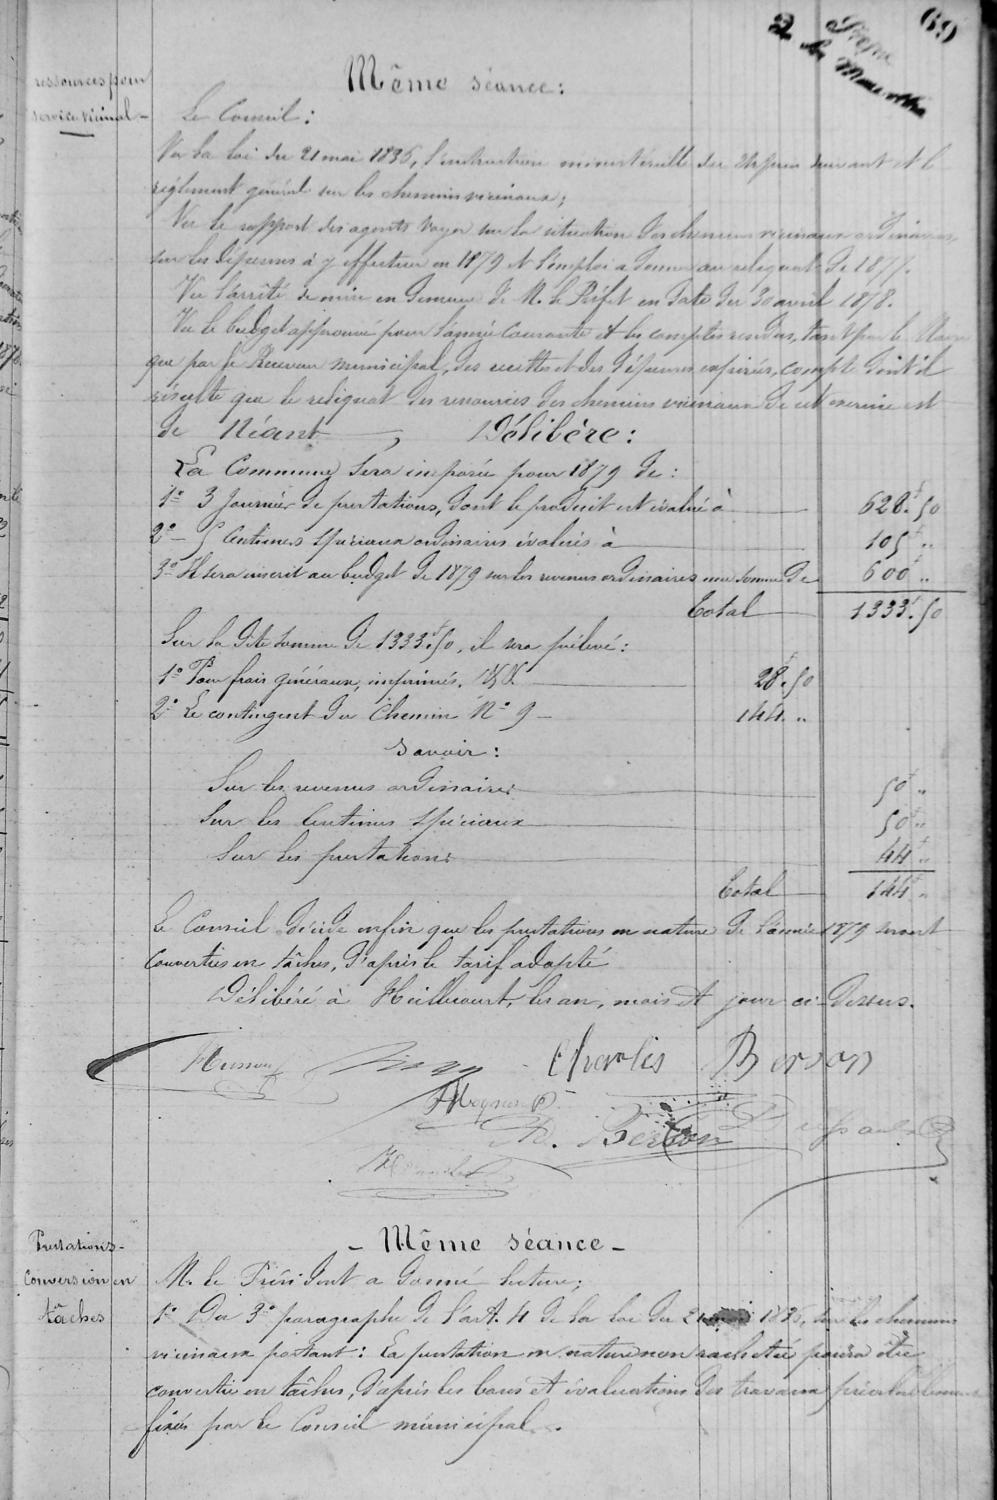 69
ressources pour
service vicinal
Même séance:
Le Conseil:
Vu la loi du 21 mai 1836, l'instruction ministérielle du suivant et le
règlement général sur les chemins vicinaux;
Vu le rapport des agents voyer sur la situation des chemins vicinaux ordinaires,
sur les dépenses à y effectuer en 1879 et l'emploi à donner au reliquat de 1877.
Vu l'arrêté de mise en demeure de M. le Préfet en date du 30 avril 1878.
Vu le budget approuvé pour l'année courante et les comptes rendus, tant par le Maire
que par le Receveur municipal, des recettes et des dépenses expirées, compte dont il
résulte que le reliquat des ressources des chemins vicinaux de cet exercice est
de Néant, Délibère:
La Commune sera imposée pour 1879 de:
1° 3 Journées de prestations, dont le produit est évalué à 628f.50
2° 5 Centimes spéciaux ordinaires évalués à 105f "
3° Il sera inscrit au budget de 1879 sur les revenus ordinaires une somme de 600f "
Total 1333f.50
Sur la dite somme de 1333f.50, il sera prélevé:
1° Pour frais généraux, imprimés, &&. 28f.50
2° Le contingent du Chemin N° 9 144. "
Savoir:
Sur les revenus ordinaires 50f "
Sur les Centimes spéciaux 50f "
Sur les prestations 44f "
Total 144f "
Le Conseil décide enfin que les prestations en nature de l'année 1879 seront
converties en tâches, d'après le tarif adopté
Délibéré à Huilliécourt, les an, mois et jour ci-dessus.
Charles Berson
Berson
Prestations-
Conversion en
tâches
- Même séance -
M. le Président a donné lecture;
1° Du 3° paragraphe de l'art. 4 de la loi du 21 mai 1836, sur les chemins
vicinaux portant: La prestation en nature non rachetée pourra être
convertie en tâches, d'après les bases et évaluations des travaux préalablement
fixés par le Conseil municipal.